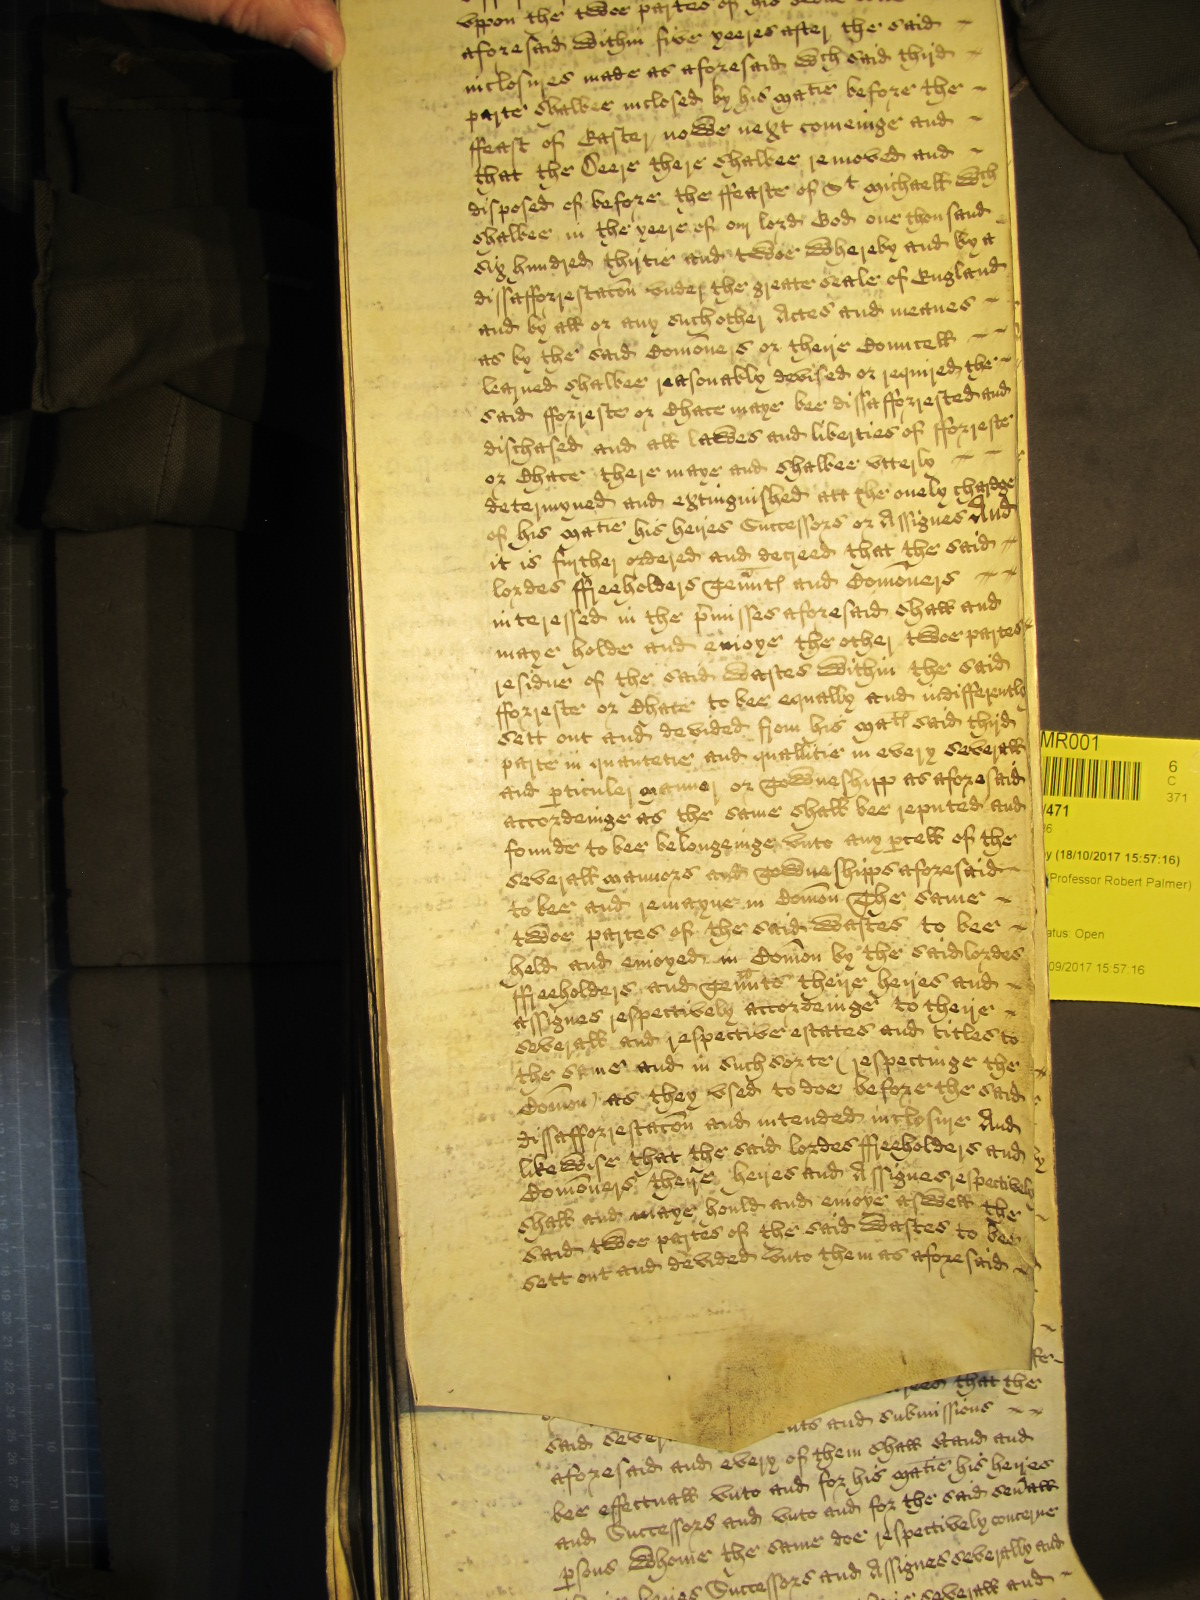 vppon the twoe partes of his
aforesaid within five yeeres after the said
inclosures made as aforesaid wch said third
parte shalbee inclosed by his matie before the
ffeast of Easter nowe next comeinge and
that the Deere there shalbee removed and
disposed of before the ffeaste of St Michaell wch
shalbee in the yeere of our lord God one thousand
six hundred thirtie and twoe whereby and by a
dissafforrestacōn vnder the greate seale of England
and by all or any such other Actes and meanes
as by the said Comōners or theire Councell
learned shalbee reasonably devised or required the
said fforreste or Chace maye bee dissafforrested and
dischased and all lawes and liberties of fforreste
or Chace there maye and shalbee vtterly
determyned and extinguished att the onely chardge
of his matie his heires Successors or Assignes And
it is further ordered and decreed that the said
lordes ffreeholders Tennts and Comōners
interessed in the pmisses aforesaid shall and
maye holde and enioye the other twoe partes
residue of the said wastes within the said
fforreste or Chace to bee equally and indifferently
sett out and devided from his mats said third
parte in quantetie and quallitie in every severall
and pticuler mannor or Towneshipp as aforesaid
accordeinge as the same shall bee reputed and
founde to bee belongeinge vnto any pcell of the
severall mannors and Towneshipps aforesaid
to bee and remayne in Comōn The same
twoe partes of the said wastes to bee
held and enioyed in Comōn by the said lordes
ffreeholders and Tennts theire heires and
assignes respectively accordeinge to theire
severall and respective estates and titles to
the same and in such sorte (respectinge the
Comōn) as they vsed to doe before the said
dissafforrestacōn and intended inclosure And
likewise that the said lordes ffreeholders and
Comōners theire heires and Assignes respectively
shall and maye hould and enioye aswell the
said twoe partes of the said wastes to bee
sett out and devided vnto them as aforesaid
that the
said sever nts and submissions
aforesaid and every of them shall stand and
bee effectuall vnto and for his matie his heires
and Successors and vnto and for the said seuall
psons whome the same doe respectively concerne
heires Successors and Assignes severally and
severall and
MR001
6
C
371
/471
y (18/10/2017 15:57:16)
Professor Robert Palmer)
atus: Open
09/2017 15:57:16